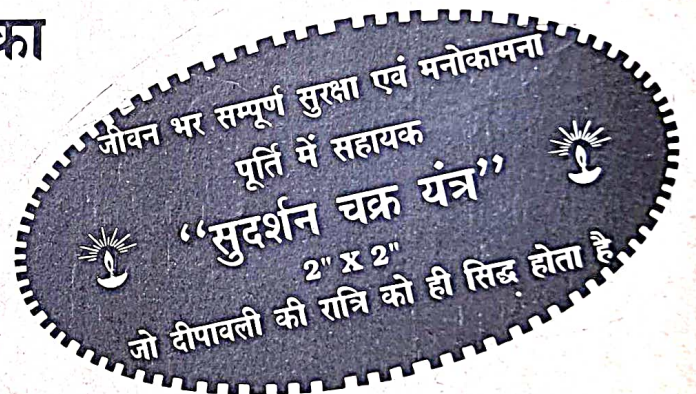 का
जीवन भर सम्पूर्ण सुरक्षा एवं मनोकामना
पूर्ति में सहायक
“सुदर्शन चक्र यंत्र”
2" X 2"
जो दीपावली की रात्रि को ही सिद्ध होता है